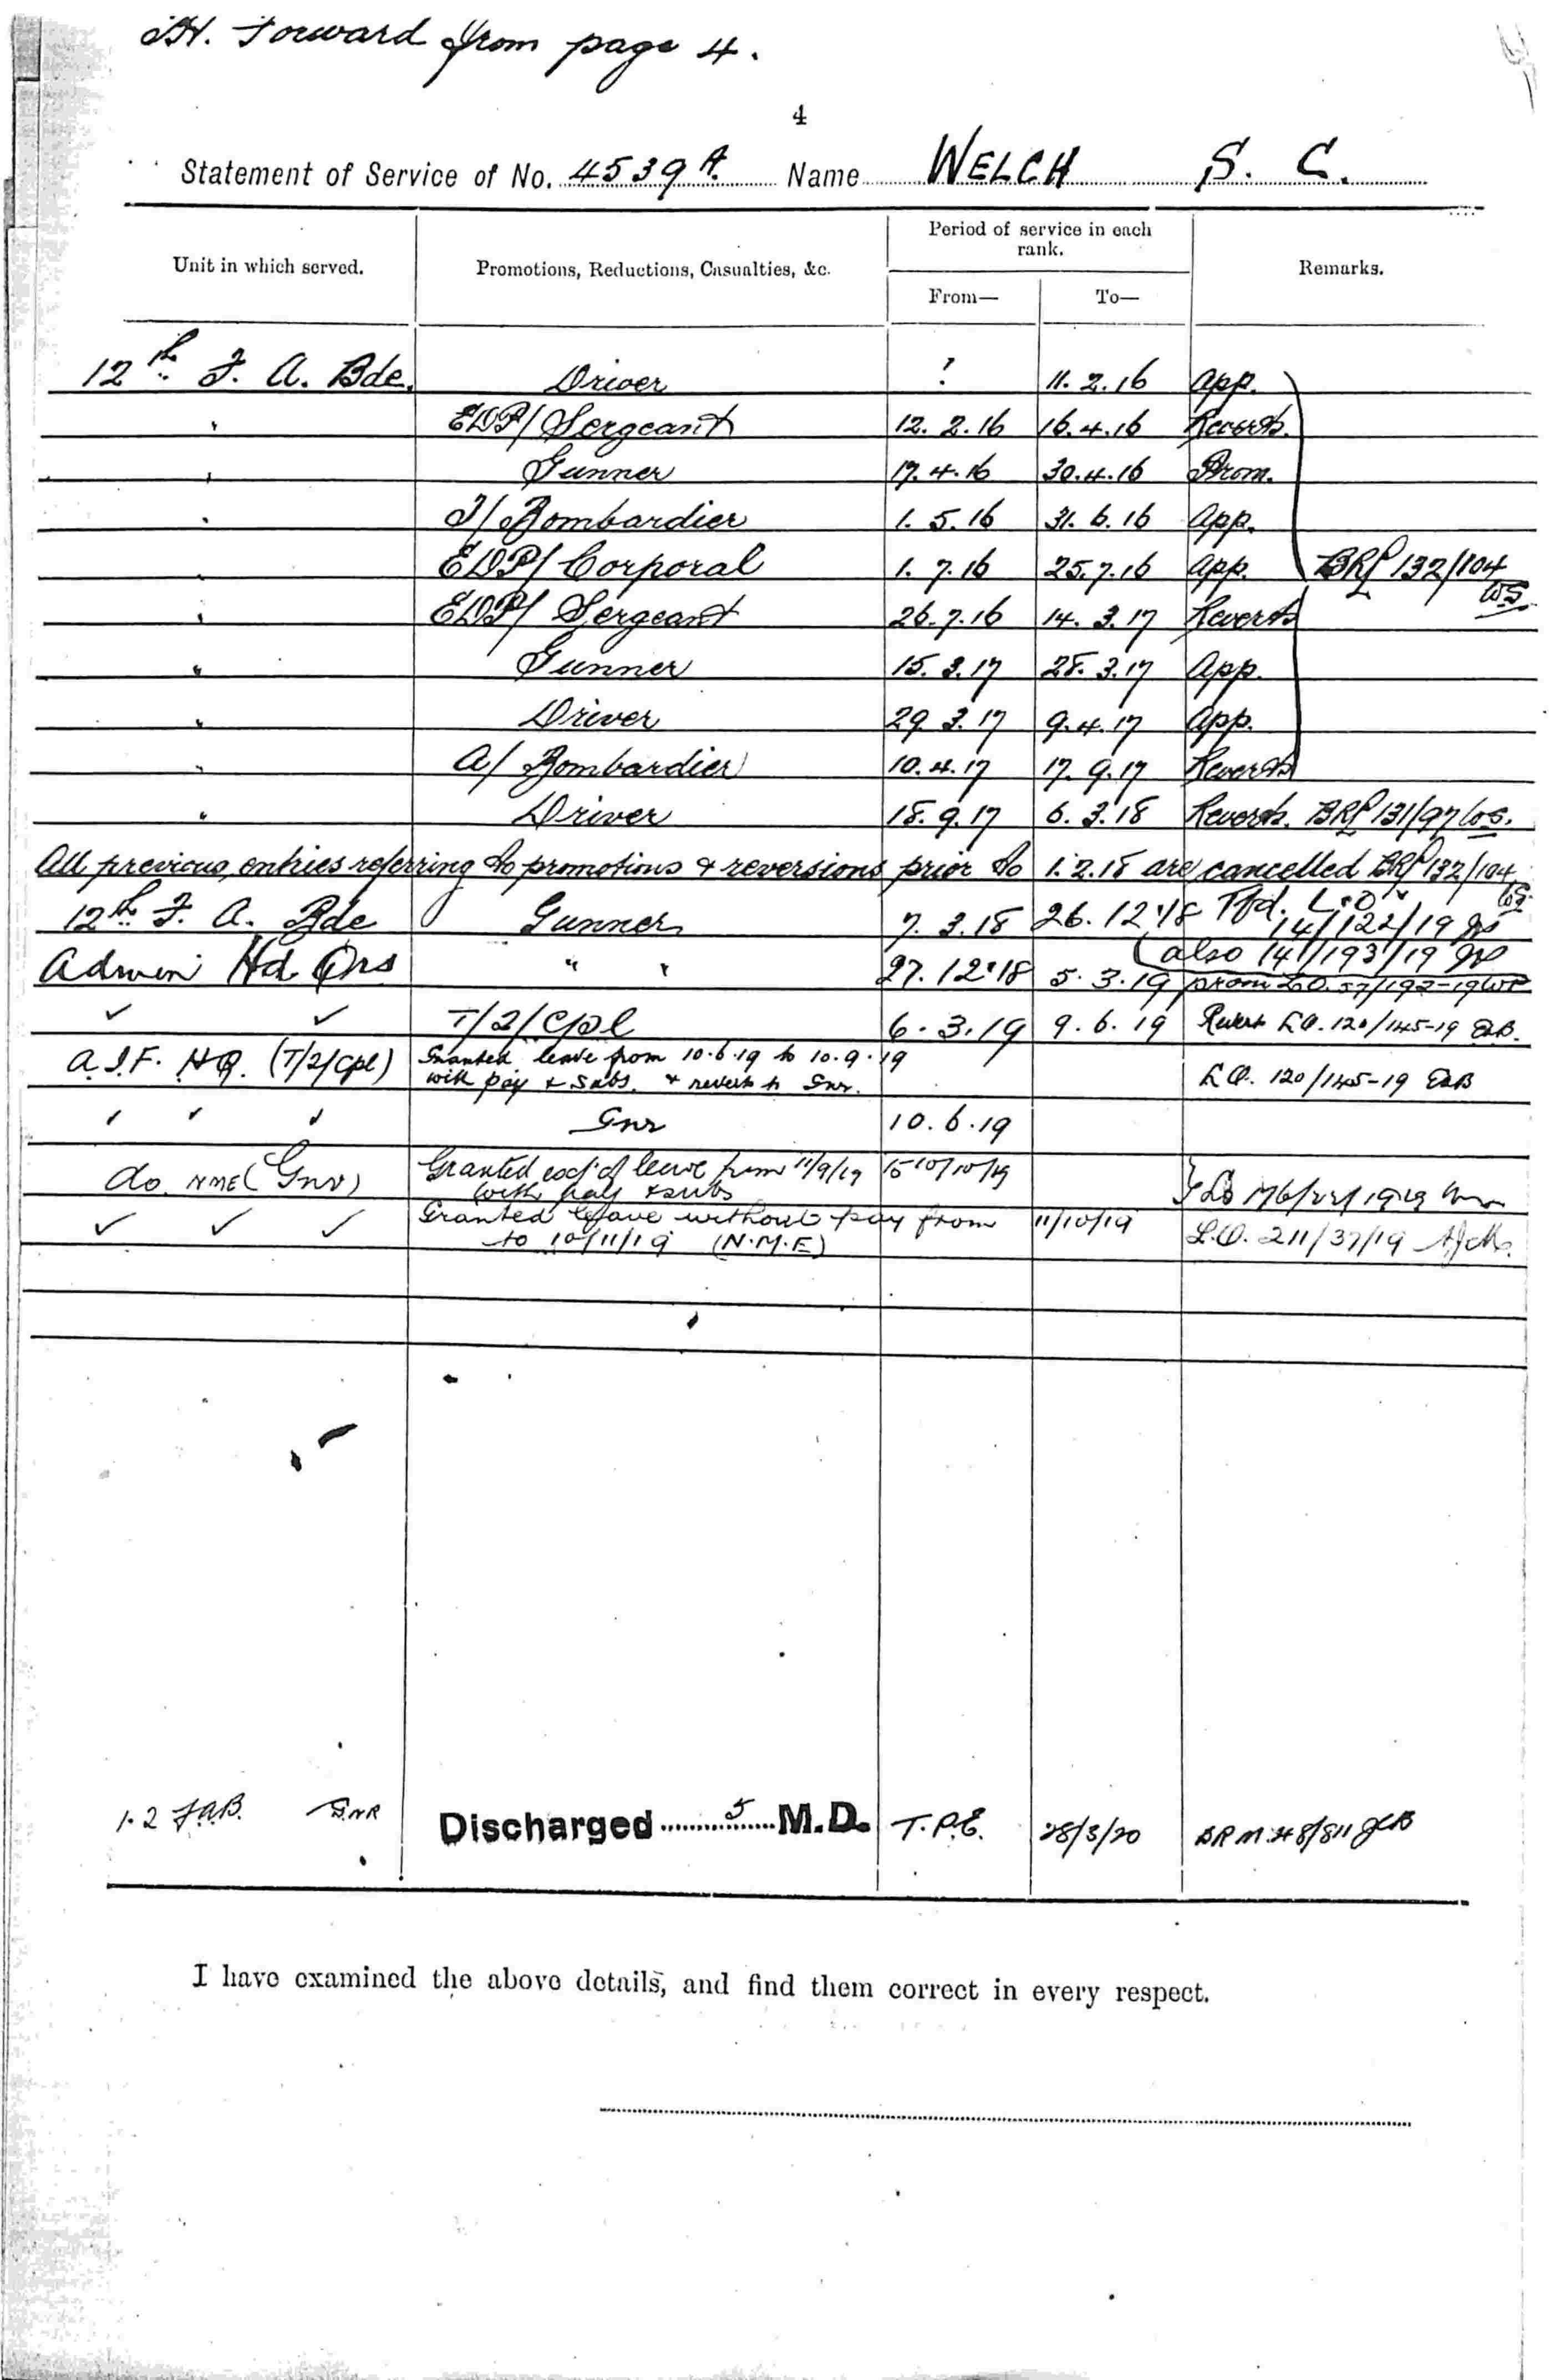 Forward from page 4.
4
Statement of Service of No. 4539 A. Name WELCH S. C.
Unit in which served. Promotions, Reductions, Casualties, &c. Period of service in each rank. From— To— Remarks.
12th F. A. Bde. Driver ? 11.2.16 App.
" EDP/ Sergeant 12.2.16 16.4.16 Reverts.
" Gunner 17.4.16 30.4.16 Prom.
" T/ Bombardier 1.5.16 31.6.16 App.
" EDP/ Corporal 1.7.16 25.7.16 App. BRL 132/104 WS.
" EDP/ Sergeant 26.7.16 14.3.17 Reverts
" Gunner 15.3.17 28.3.17 App.
" Driver 29.3.17 9.4.17 App.
" A/ Bombardier 10.4.17 17.9.17 Reverts
" Driver 18.9.17 6.3.18 Reverts. BRL 131/97 WS.
All previous entries referring to promotions & reversions prior to 1.2.18 are cancelled BRL 132/104 WS
12th F. A. Bde Gunner 7.3.18 26.12.18 Tfd. L.O. 14/122/19
Admin Hd Qrs " " 27.12.18 5.3.19 (also 14/193/19
prom L.O. 57/192-19 WP
✓ ✓ T/2/Cpl 6.3.19 9.6.19 Revert L.O. 120/145-19
A.I.F. HQ. (T/2/Cpl) Granted leave from 10.6.19 to 10.9.19
with pay & subs. & revert to Gnr. L.O. 120/145-19
" " " Gnr 10.6.19
do NME (Gnr) Granted ext of leave from 11/9/19 to 10/10/19
with pay & subs
✓ ✓ ✓ Granted leave without pay from 11/10/19
to 10/11/19 (N.M.E) L.O. 211/37/19
12 F.A.B. GNR Discharged 5 M.D. T.P.E. 28/3/20
I have examined the above details, and find them correct in every respect.